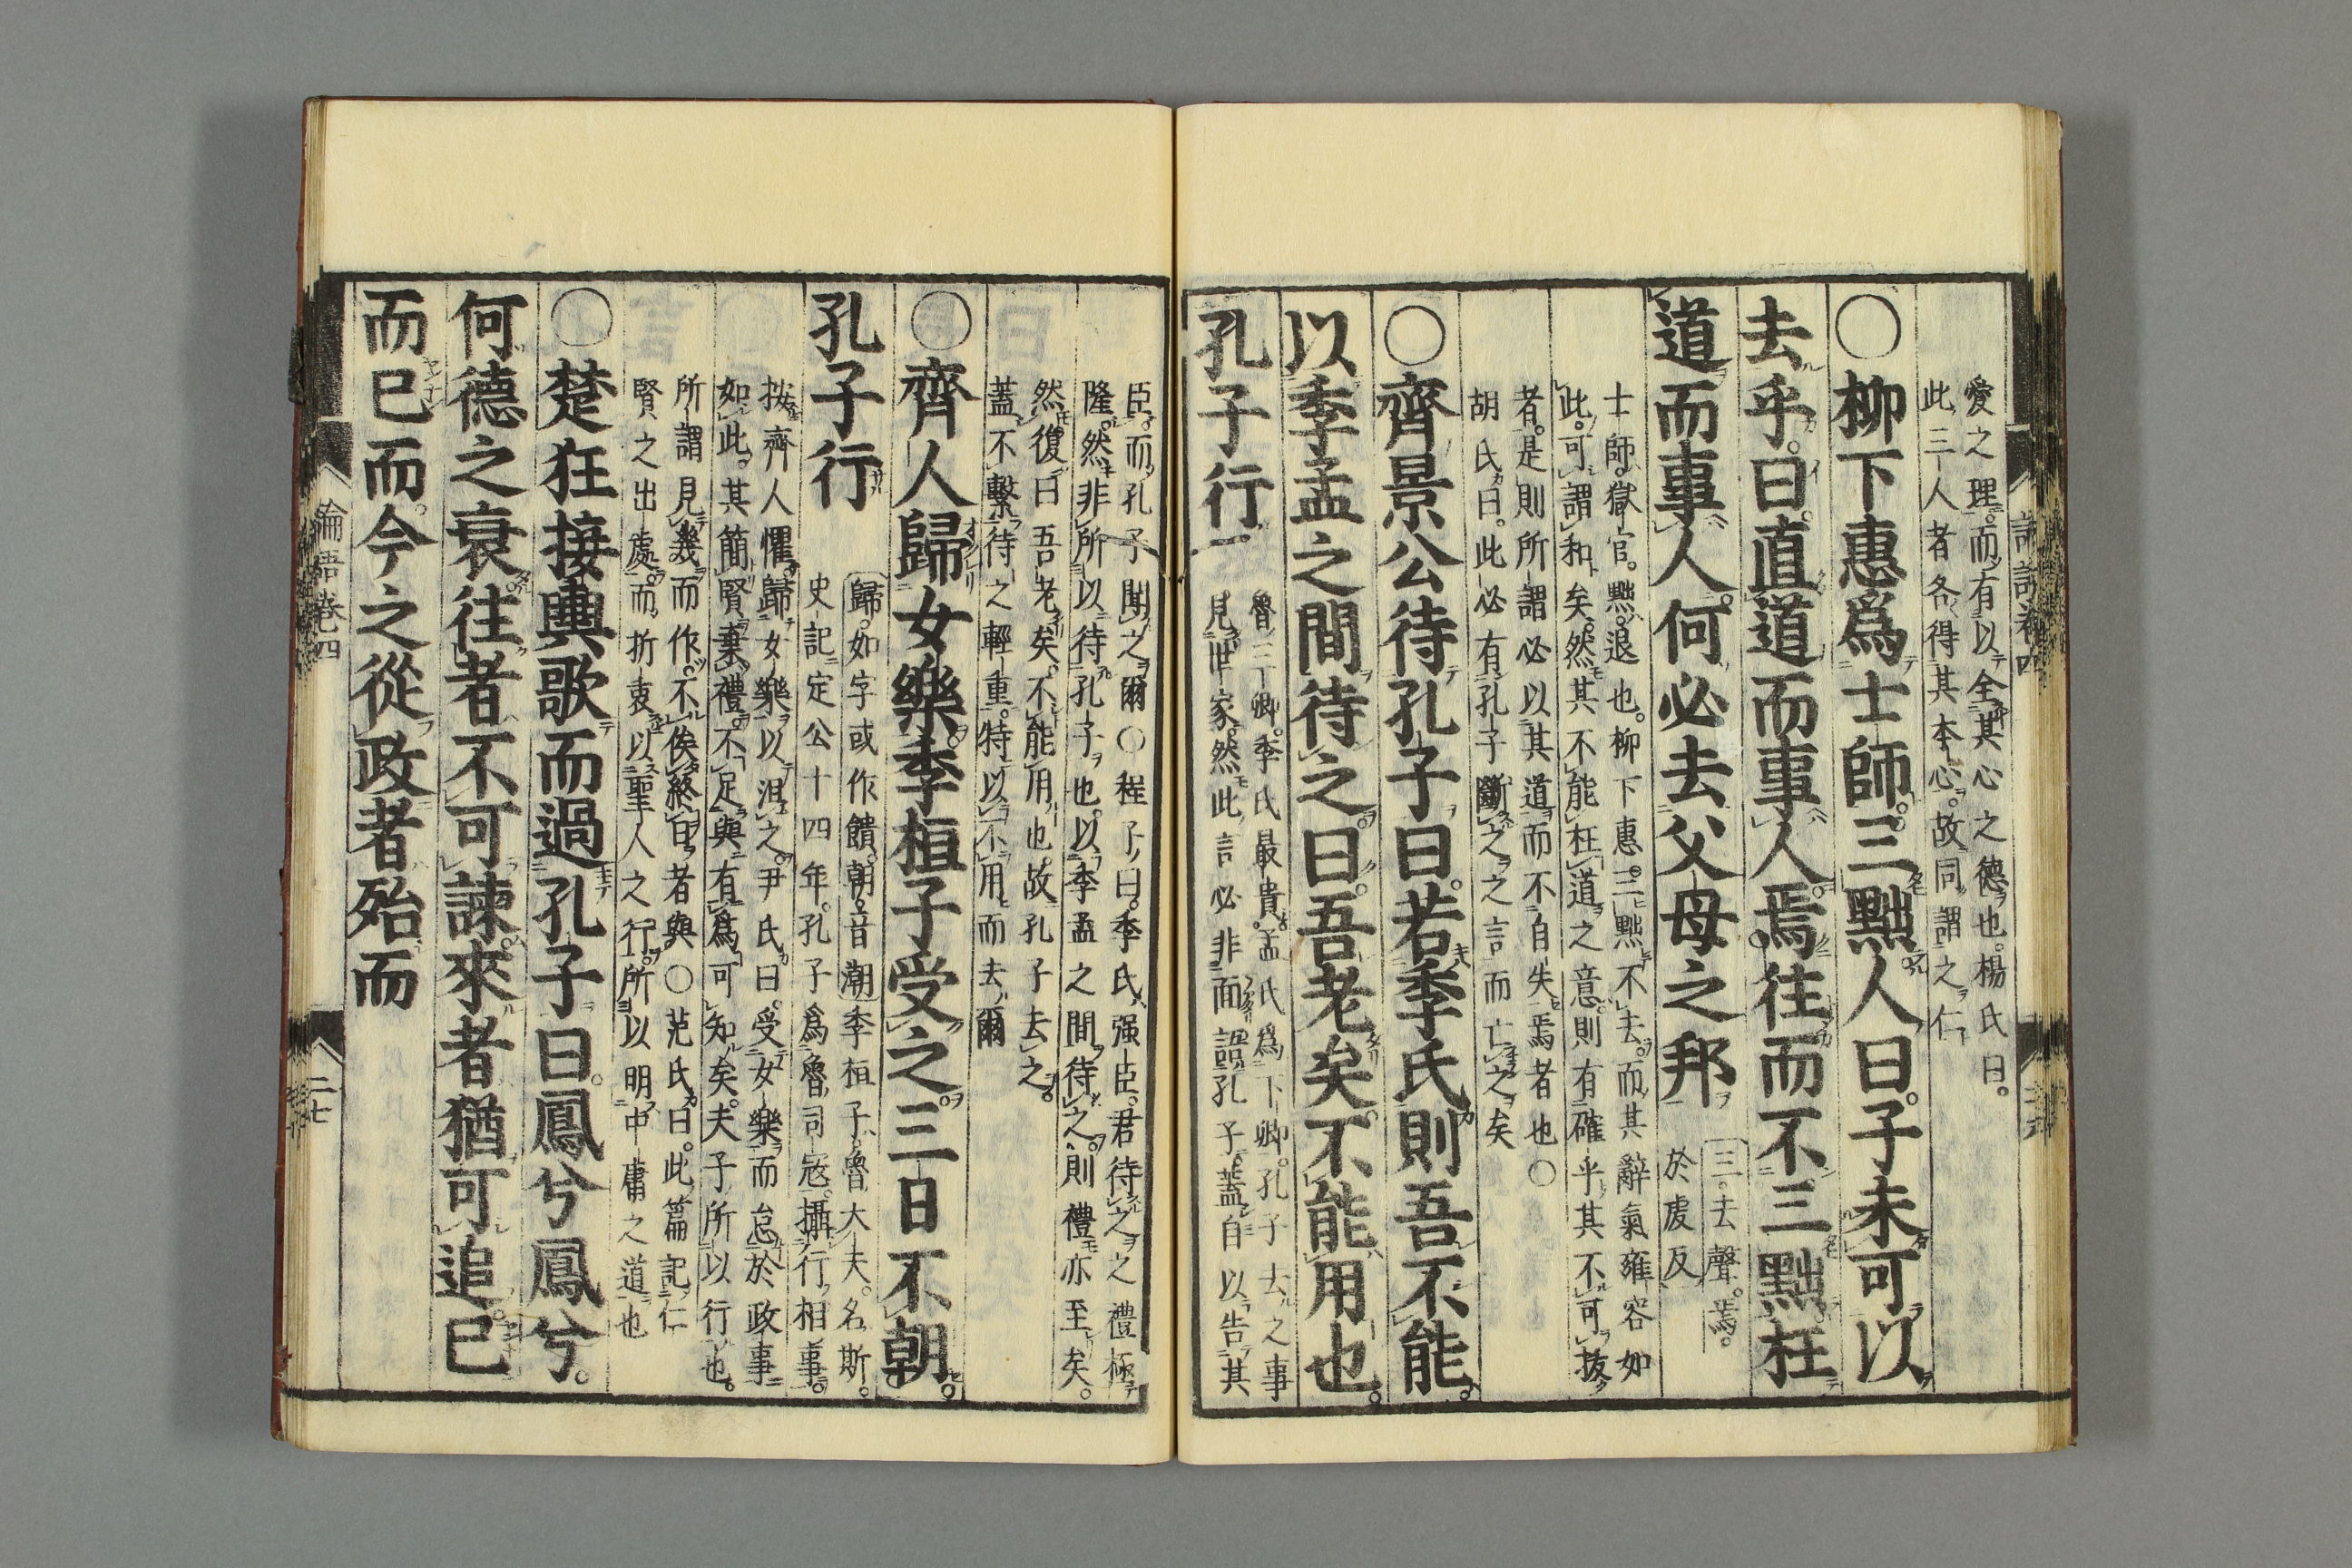 愛之理。而有以全其心之德也。楊氏曰。
此三人者各得其本心。故同謂之仁
○柳下惠爲士師。三黜。人曰。子未可以
去乎。曰。直道而事人。焉往而不三黜。枉
道而事人。何必去父母之邦
三。去聲。焉。
於虔反
士師。獄官。黜。退也。柳下惠。三黜不去。而其辭氣雍容如
此。可謂和矣。然其不能枉道之意。則有確乎其不可拔
者。是則所謂必以其道而不自失焉者也○
胡氏曰。此必有孔子斷之之言而亡之矣
○齊景公待孔子曰。若季氏則吾不能。
以季孟之間待之。曰。吾老矣。不能用也。
孔子行
魯三卿。季氏最貴。孟氏爲下卿。孔子去之事
見世家。然此言必非面語孔子。蓋自以告其
臣。而孔子聞之爾○程子曰。季氏強臣。君待之之禮極
隆。然非所以待孔子也。以季孟之間待之。則禮亦至矣。
然復曰吾老矣。不能用也。故孔子去之。
蓋不繫待之輕重。特以不用而去爾
○齊人歸女樂。季桓子受之。三日不朝。
孔子行
歸。如字或作饋。朝。音潮季桓子。魯大夫。名斯。
史記定公十四年。孔子爲魯司寇。攝行相事。
按齊人懼。歸女樂以沮之。尹氏曰。受女樂而怠於政事
如此。其簡賢棄禮。不足與有爲可知矣。夫子所以行也。
所謂見幾而作。不俟終日者與○范氏曰。此篇記仁
賢之出處。而折衷以聖人之行。所以明中庸之道也
○楚狂接輿歌而過孔子曰。鳳兮鳳兮。
何德之衰。往者不可諫。來者猶可追。已
而已而。今之從政者殆而
論語卷四
二七